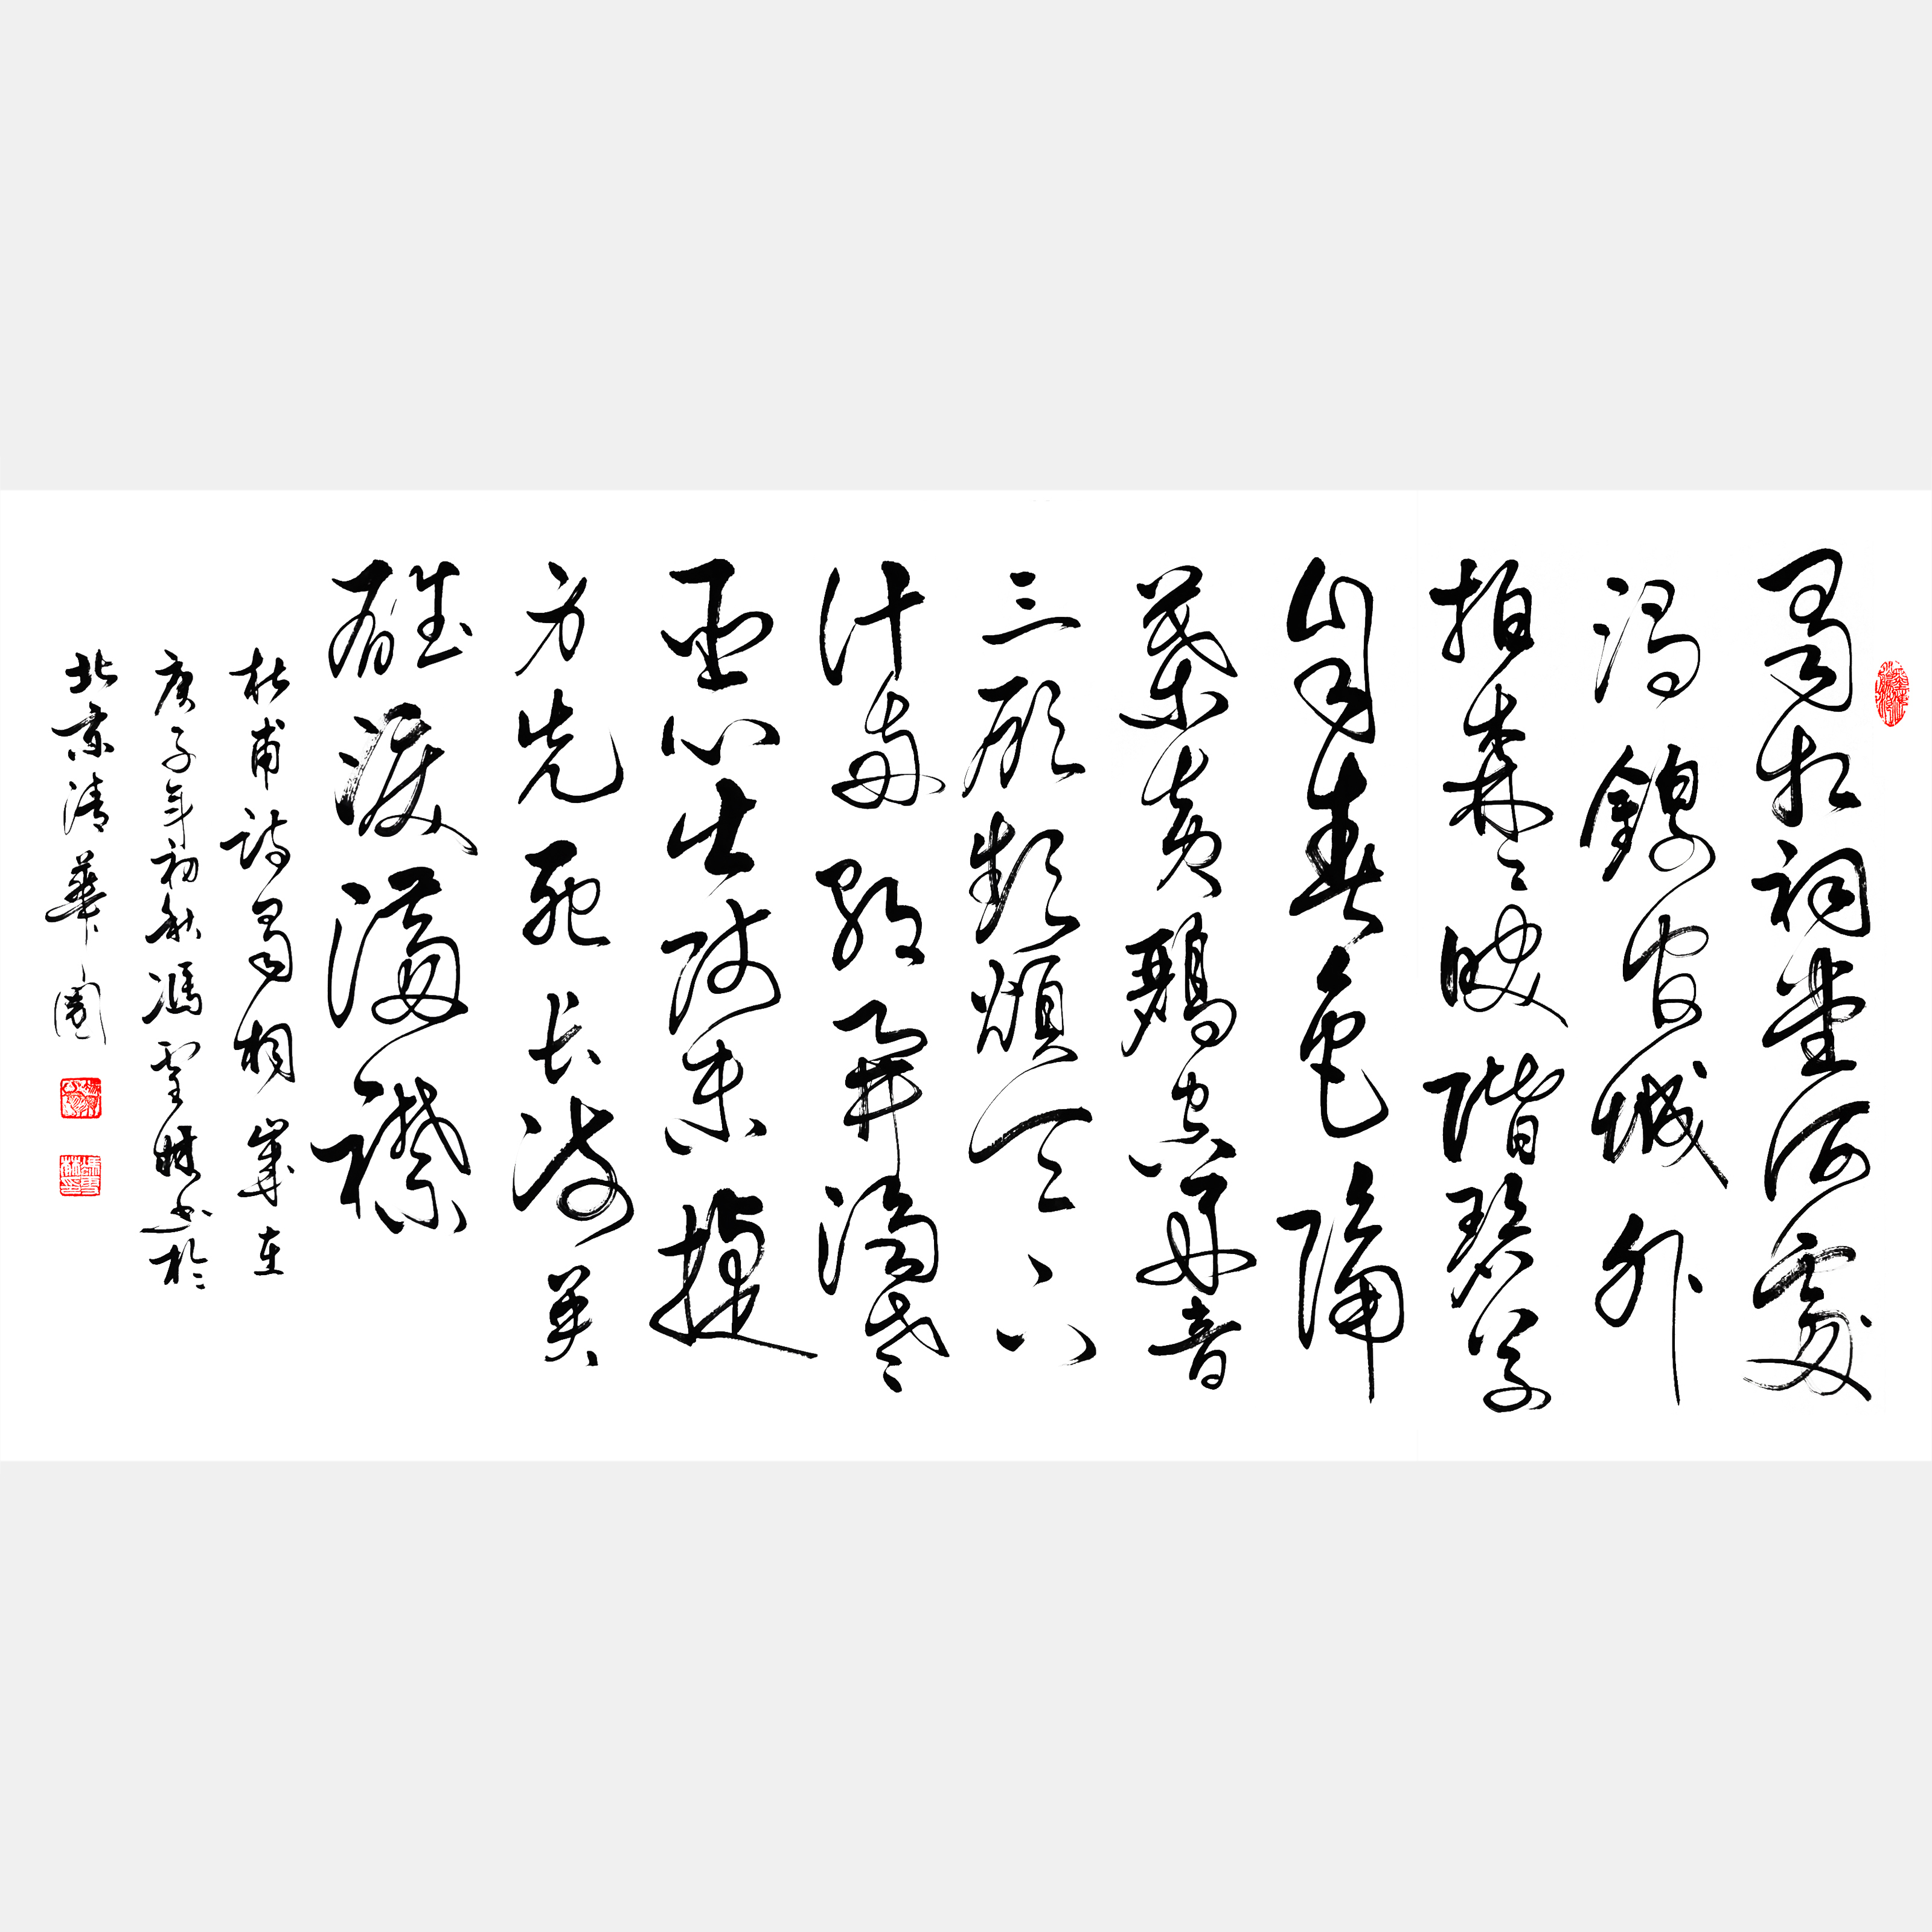 蜀相祠堂何處
尋錦官城外
柏森森映階碧草
自春色隔
葉黃鸝空好音
三顧頻煩天下
計兩朝開濟老
臣心出師未捷
身先死長使英
雄淚滿襟
杜甫詩蜀相歲在
庚子年初秋馮雪林書於
北京清華園